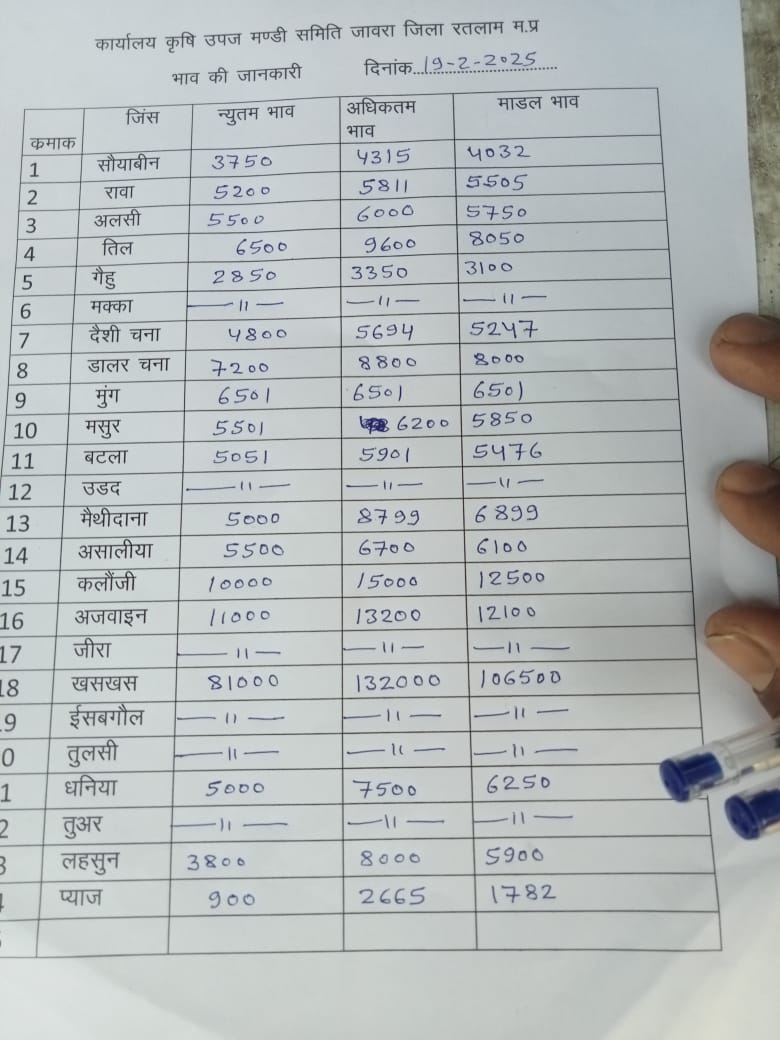 कार्यालय कृषि उपज मण्डी समिति जावरा जिला रतलाम म.प्र
भाव की जानकारी दिनांक 19-2-2025
कमाक जिंस न्युतम भाव अधिकतम भाव माडल भाव
1 सौयाबीन 3750 4315 4032
2 रावा 5200 5811 5505
3 अलसी 5500 6000 5750
4 तिल 6500 9600 8050
5 गैहु 2850 3350 3100
6 मक्का —॥— —॥— —॥—
7 दैशी चना 4800 5694 5247
8 डालर चना 7200 8800 8000
9 मुंग 6501 6501 6501
10 मसुर 5501 6200 5850
11 बटला 5051 5901 5476
12 उडद —॥— —॥— —॥—
13 मैथीदाना 5000 8799 6899
14 असालीया 5500 6700 6100
15 कलौंजी 10000 15000 12500
16 अजवाइन 11000 13200 12100
17 जीरा —॥— —॥— —॥—
18 खसखस 81000 132000 106500
9 ईसबगौल —॥— —॥— —॥—
0 तुलसी —॥— —॥— —॥—
1 धनिया 5000 7500 6250
2 तुअर —॥— —॥— —॥—
3 लहसुन 3800 8000 5900
प्याज 900 2665 1782